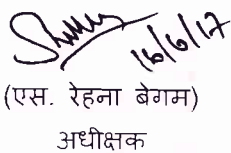 16/6/17
(एस. रेहना बेगम)
अधीक्षक